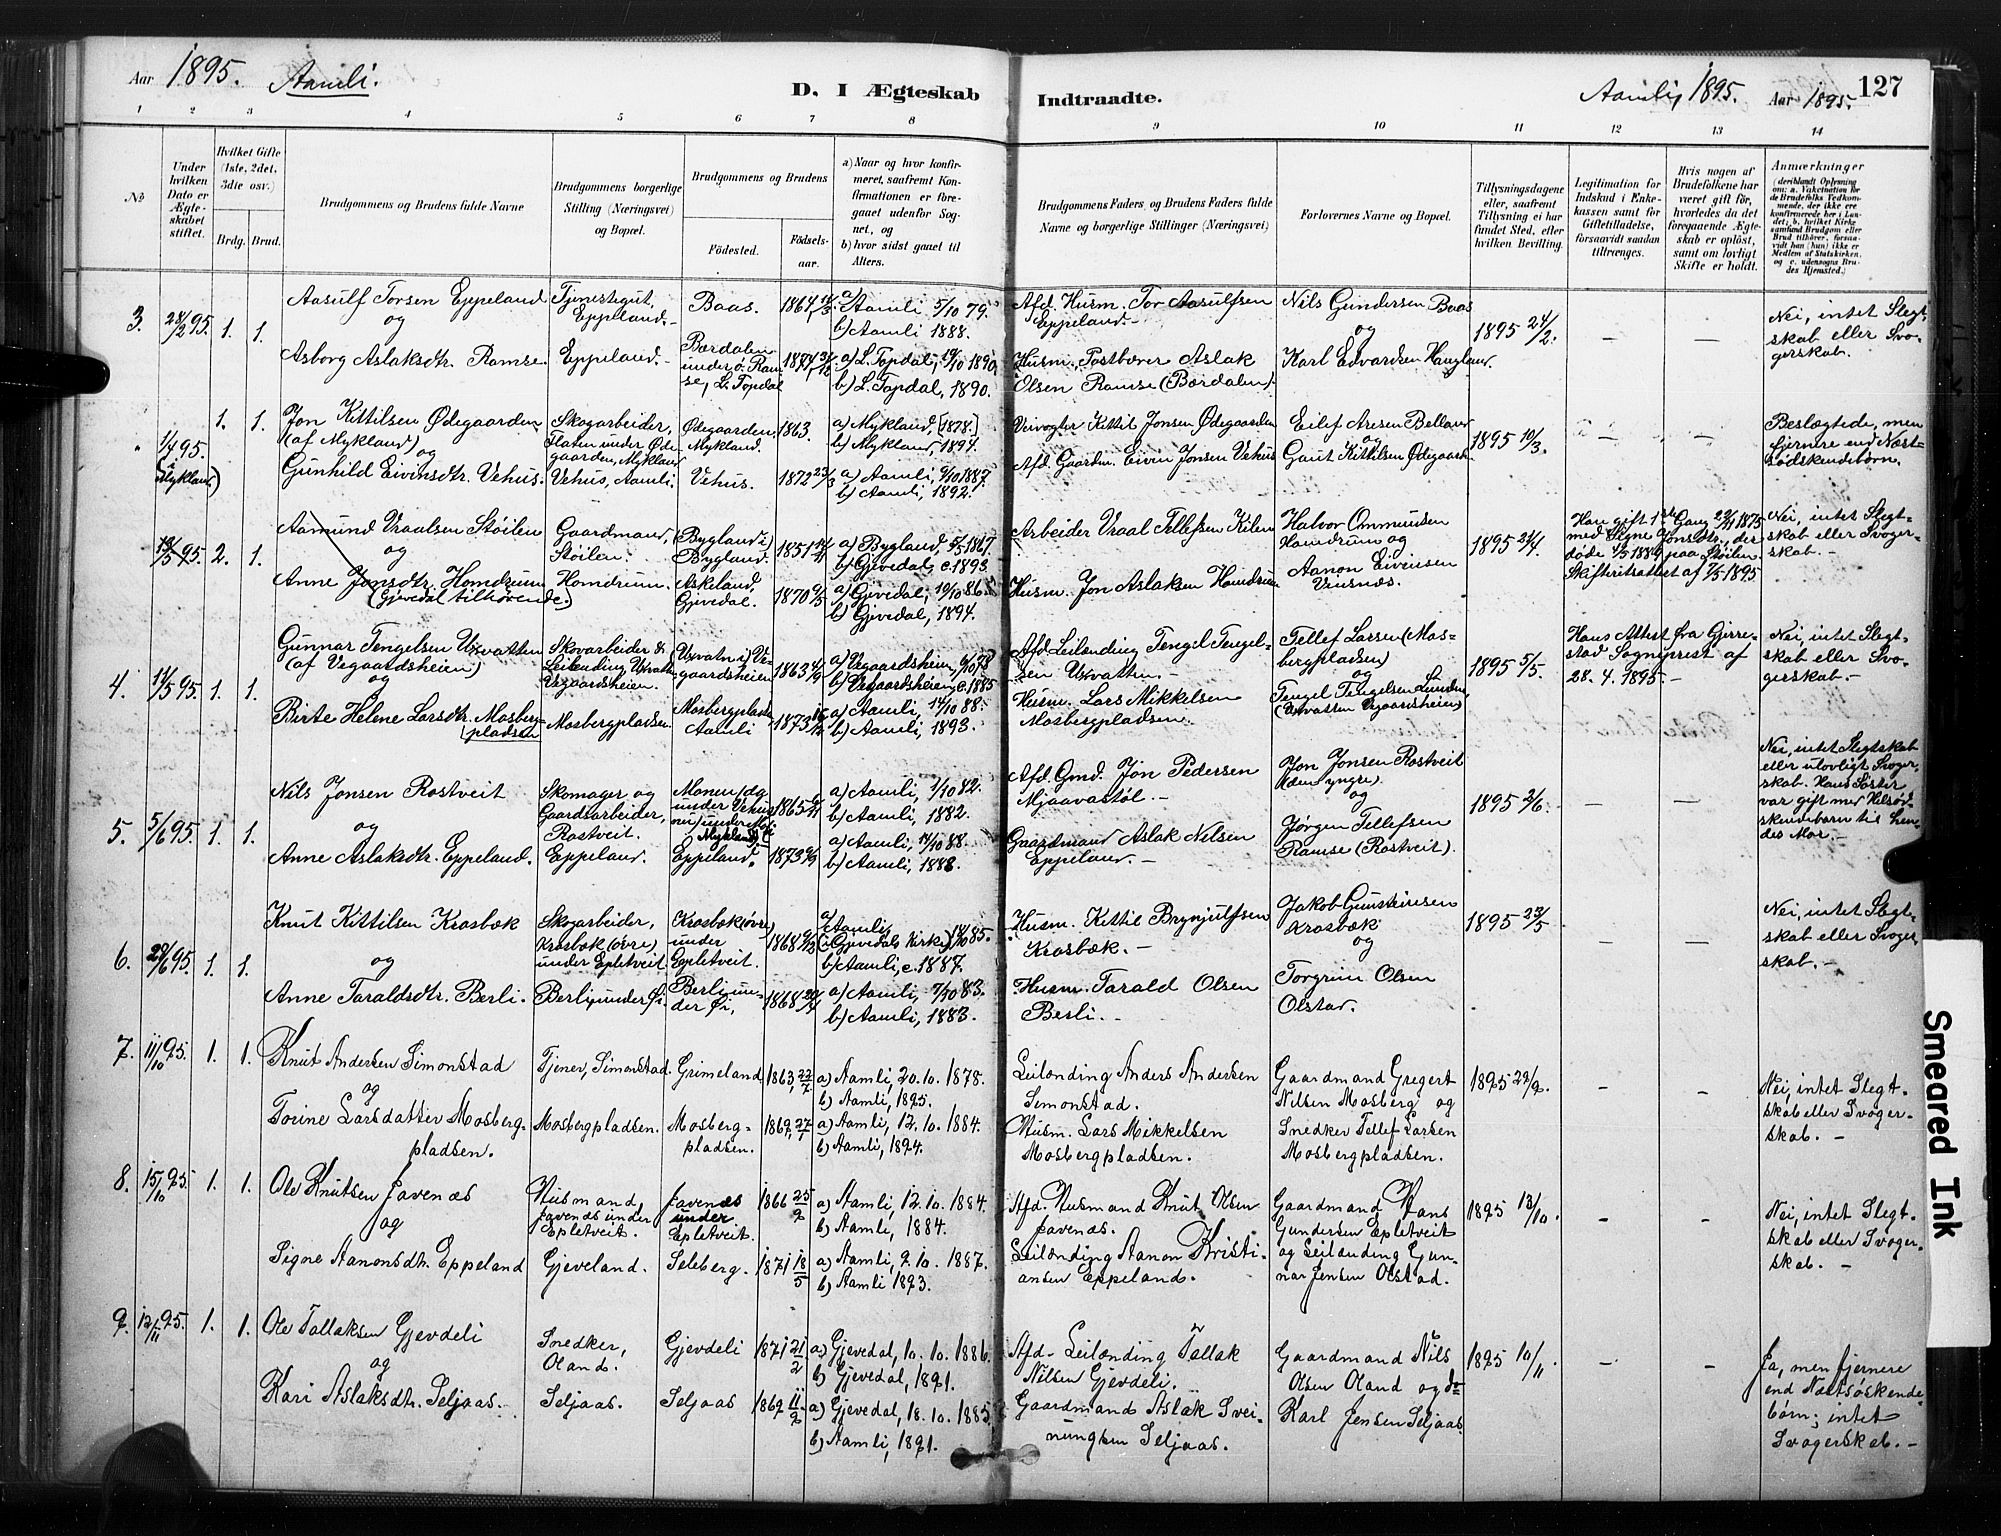 Aar 1895. Aamli.
D. I Ægteskab Indtraadte.
Aamli 1895. Aar 1895. 127
1 2 3 4 5 6 7 8 9 10 11 12 13 14
No
Under hvilken Dato er Ægteskabet stiftet.
Hvilket Gifte (1ste, 2det, 3die osv.)
Brdg. Brud.
Brudgommens og Brudens fulde Navne
Brudgommens borgerlige Stilling (Næringsvei) og Bopæl.
Brudgommens og Brudens
Fødested. Fødsels-aar.
a) Naar og hvor konfirmeret, saafremt Konfirmationen er foregaaet udenfor Sognet, og
b) hvor sidst gaaet til Alters.
Brudgommens Faders, og Brudens Faders fulde Navne og borgerlige Stillinger (Næringsvei)
Forlovernes Navne og Bopæl.
Tillysningsdagene eller, saafremt Tillysning ei har fundet Sted, efter hvilken Bevilling.
Legitimation for Indskud i Enkekassen samt for Giftetilladelse, forsaavidt saadan tiltrænges.
Hvis nogen af Brudefolkene har været gift før, hvorledes da det foregaaende Ægteskab er opløst, samt om lovligt Skifte er holdt.
Anmærkninger
3. 28/2 95. 1. 1.
Aasulf Torsen Eppeland
og
Asborg Aslaksdtr. Ramse
Tjenestegut, Eppeland.
Eppeland.
Baas. 1864
Bærdalen under ø. Ramse, L. Topdal
a) Aamli 5/10 79.
b) Aamli 1888.
a) L. Topdal, 19/10 1890
b) L. Topdal, 1890.
Afd. Husm. Tor Aasulfsen
Eppeland.
Husm. Postbærer Aslak
Olsen Ramse (Bærdalen).
Nils Gundersen Baas
og
Karl Edvardsen Haugland.
1895 24/2.
Nei, intet Slegtskab eller Svogerskab.
1/4 95. (i Mykland) 1. 1.
Jon Kittilsen Ødegaarden
(af Mykland) og
Gunhild Eivindsdtr. Vehus.
Skogarbeider, Flaten under Ødegaarden, Mykland
Vehus, Aamli.
Ødegaarden, Mykland. 1863.
Vehus. 1872 23/3
a) Mykland, [1878.]
b) Mykland, 1894.
a) Aamli, 9/10 1887.
b) Aamli, 1892.
Veivogter Kittil Jonsen Ødegaarden
Afd. Gaardm. Eivin Jonsen Vehus
Eilef Aresen Belland
og
Gaut Kittilsen Ødegaard
1895 10/3.
Beslægtede, men fjernere end Næstsødskendebørn.
95. 2. 1.
Aamund Vraalsen Støilen
og
Anne Jonsdtr. Homdrum
(Gjevedal tilhørende.)
Gaardmand, Støilen.
Homdrum.
(Bygland i) Bygland. 1851
Askeland, Gjevedal. 1870 9/5
a) Bygland, 1867.
b) Gjevedal, c. 1893.
a) Gjevedal, 10/10 86.
b) Gjevedal, 1894.
Arbeider Vraal Tellefsen Kilen
Husm. Jon Aslaksen Homdrum
Halvor Ommundsen
Homdrum og
Aanon Eivensen
Vinsnæs.
1895 21/4.
Han gift 1ste Gang 22/11 1875
med Signe Jonsdtr., der
døde 4/2 1889 paa Støilen.
Skifteretsattest af 7/5 1895
Nei, intet Slegtskab eller Svogerskab.
4. 11/5 95. 1. 1.
Gunnar Tengelsen Uxvatten
(af Vegaardsheien)
og
Birte Helene Larsdtr. Mosbergpladsen
Skovarbeider & Leilending Uxvatten Vegaardsheien.
Mosbergpladsen
(Uxvatn i) Vegaardsheien 1863 4/9
Mosbergpladsen Aamli 1873
a) Vegaardsheien, 6/10 78
b) Vegaardsheien, c. 1885
a) Aamli, 14/10 88.
b) Aamli, 1893.
Afd. Leilending Tengel Tengelsen Uxvatten.
Husm. Lars Mikkelsen
Mosbergpladsen.
Tellef Larsen (Mosbergpladsen)
og
Tengel Tengelsen Lunden
(Uxvatten Vegaardsheien)
1895 5/5.
Hans Attest fra Gjerrestad Sogneprest af
28. 4. 1895.
Nei, intet Slegtskab eller Svogerskab.
5. 5/6 95. 1. 1.
Nils Jonsen Rostveit
og
Anne Aslaksdtr. Eppeland.
Skomager og Gaardsarbeider, Rostveit.
Eppeland.
1865
Eppeland. 1873 9/9
a) Aamli, 1/10 82.
b) Aamli, 1882.
a) Aamli, 14/10 88.
b) Aamli, 1888.
Afd. Gmd. Jon Pedersen
Mjaavastøl.
Gaardmand Aslak Nilsen
Eppeland.
Jon Jonsen Rostveit
(den yngre).
og
Jørgen Tellefsen
Ramse (Rostveit).
1895 2/6.
Nei, intet Slegtskab eller ulovligt Svogerskab. Hans Søster var gift med Helsødskendebarn til hendes Mor.
6. 29/6 95. 1. 1.
Knut Kittilsen Krosbæk
og
Anne Taraldsdtr. Berli.
Skogarbeider, Krosbæk (øvre) under Epletveit
Berli under Øi.
Krosbæk (øvre) under Epletveit. 1868
Berli under Øi, 1868
a) Aamli, (Gjevedals Kirke) 14/10 85.
b) Aamli, c. 1887.
a) Aamli, 7/10 83.
b) Aamli, 1883.
Husm. Kittil Brynjulfsen
Krosbæk.
Husm. Tarald Olsen
Berli.
Jakob Gunsteinsen
Krosbæk
og
Torgrim Olsen
Olstad.
1895 23/5
Nei, intet Slegtskab eller Svogerskab.
7. 11/10 95. 1. 1.
Knut Andersen Simonstad
og
Torine Larsdatter Mosbergpladsen.
Tjener, Simonstad.
Mosbergpladsen.
Grimeland 1863, 22/7
Mosbergpladsen. 1869, 27/1
a) Aamli, 20. 10. 1878.
b) Aamli, 1895.
a) Aamli, 12. 10. 1884.
b) Aamli, 1894.
Leilænding Anders Andersen
Simonstad.
Husm. Lars Mikkelsen
Mosbergpladsen.
Gaardmand Gregert
Nilsen Mosberg og
Snedker Tellef Larsen
Mosbergpladsen.
1895 29/9.
Nei, intet Slegtskab eller Svogerskab.
8. 15/10 95. 1. 1.
Ole Knutsen Favenæs
og
Signe Aanonsdtr. Eppeland
Husmand, Favenæs under Epletveit.
Gjeveland.
Favenæs under Epletveit. 1866 25/9
Seleberg. 1871 18/5
a) Aamli, 12. 10. 1884.
b) Aamli, 1884.
a) Aamli, 9. 10. 1887.
b) Aamli 1893.
Afd. Husmand Knut Olsen
Favenæs.
Leilænding Aanon Kristiansen Eppeland.
Gaardmand Hans
Gundersen Epletveit
og Leilænding Gunnar Jensen Olstad.
1895 13/10.
Nei, intet Slegtskab eller Svogerskab.
9. 12/11 95. 1. 1.
Ole Tallaksen Gjevdeli
og
Kari Aslaksdtr. Seljaas.
Snedker, Oland.
Seljaas.
Gjevdeli 1871 21/2
Seljaas 1869 11/9
a) Gjevedal, 10. 10. 1886.
b) Gjevedal, 1891.
a) Gjevedal, 18. 10. 1885.
b) Aamli, 1891.
Afd. Leilænding Tallak
Nilsen Gjevdeli.
Gaardmand Aslak Sveinungsen Seljaas.
Gaardmand Nils
Olsen Oland og do
Karl Jensen Seljaas.
1895 10/11.
Ja, men fjernere end Næstsøskendebørn; intet Svogerskab.
Smeared Ink